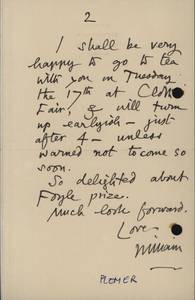 2
I shall be very
happy to go to tea
with you on Tuesday
the 17th at
Fair, & will turn
up earlyish – just
after 4 – unless
warned not to come so
soon.
So delighted about
Foyle prize.
Much look forward.
Love –
William
PLOMER